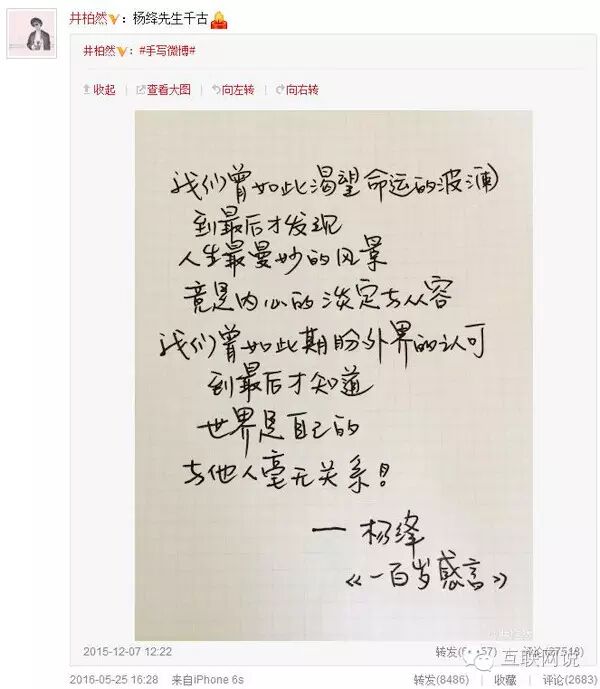 井柏然：杨绛先生千古
井柏然：#手写微博#
收起 查看大图 向左转 向右转
我们曾如此渴望命运的波澜
到最后才发现
人生最曼妙的风景
竟是内心的淡定与从容
我们曾如此期盼外界的认可
到最后才知道
世界是自己的
与他人毫无关系！
一杨绛
《一百岁感言》
@井柏然
2015-12-07 12:22
互联网说
2016-05-25 16:28 来自iPhone 6s 转发(8486) | 收藏 | 评论(2683)